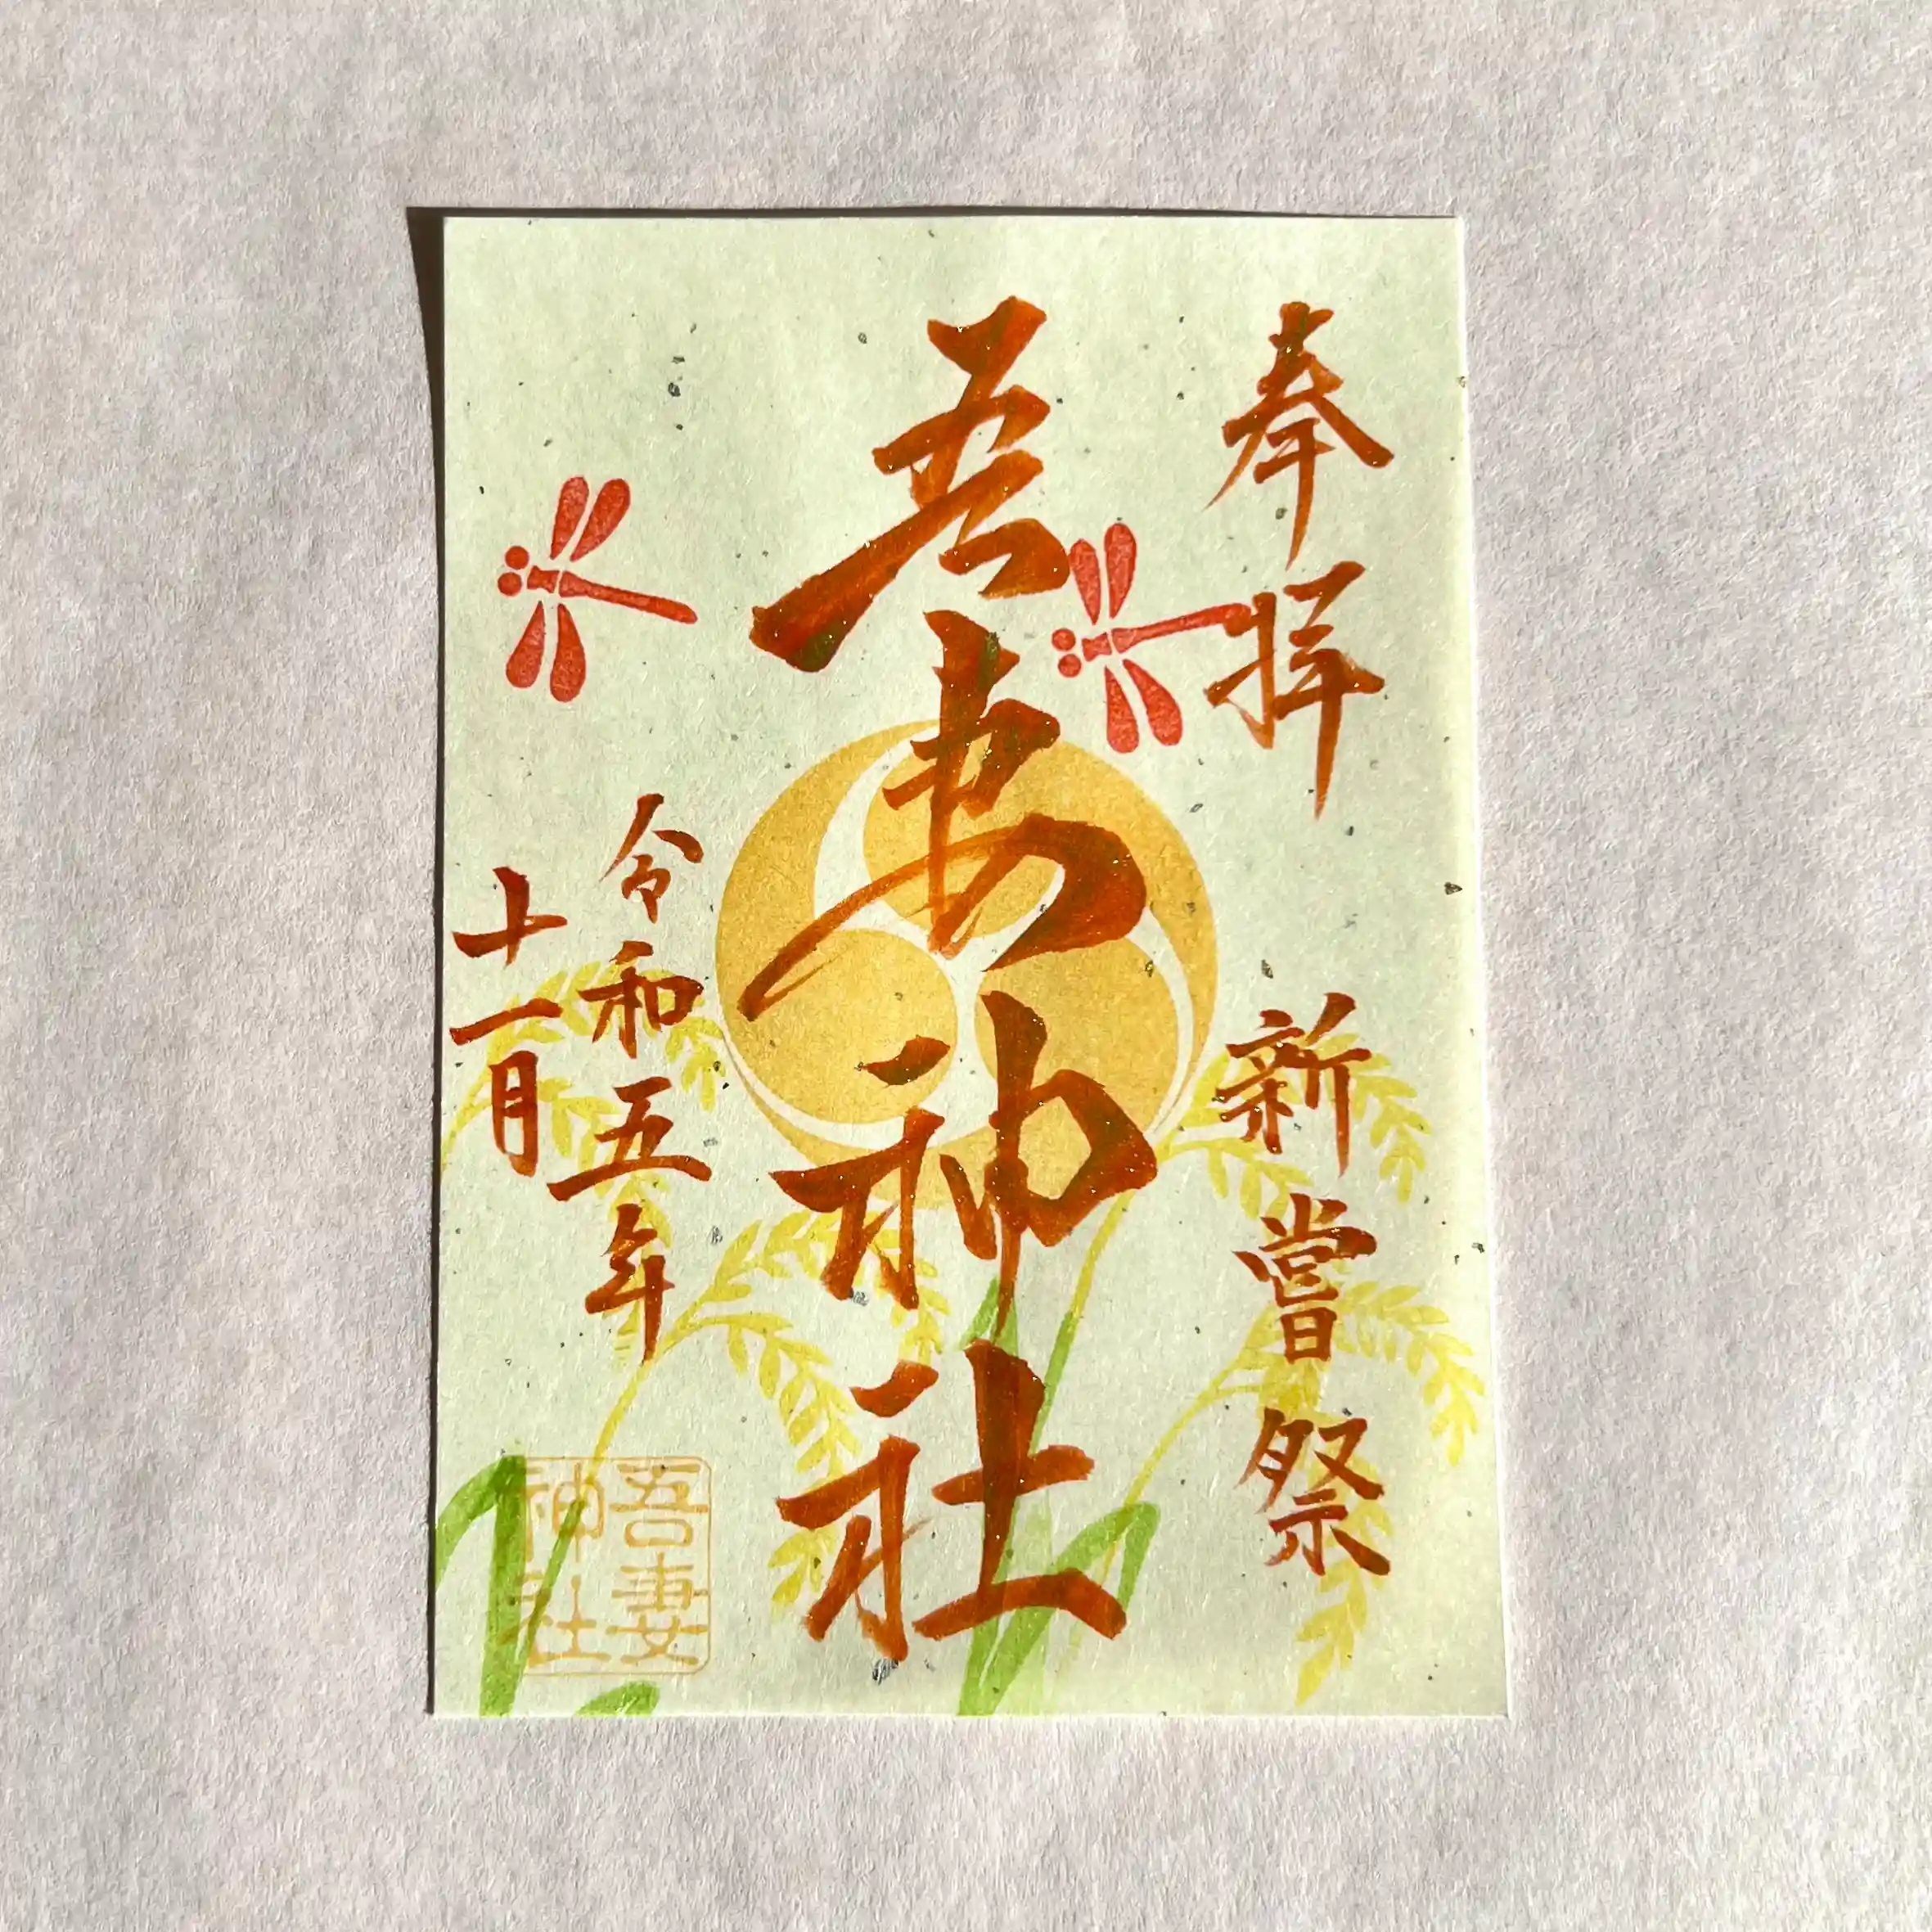 奉拝
新嘗祭
吾妻神社
令和五年
十一月
吾妻
神社